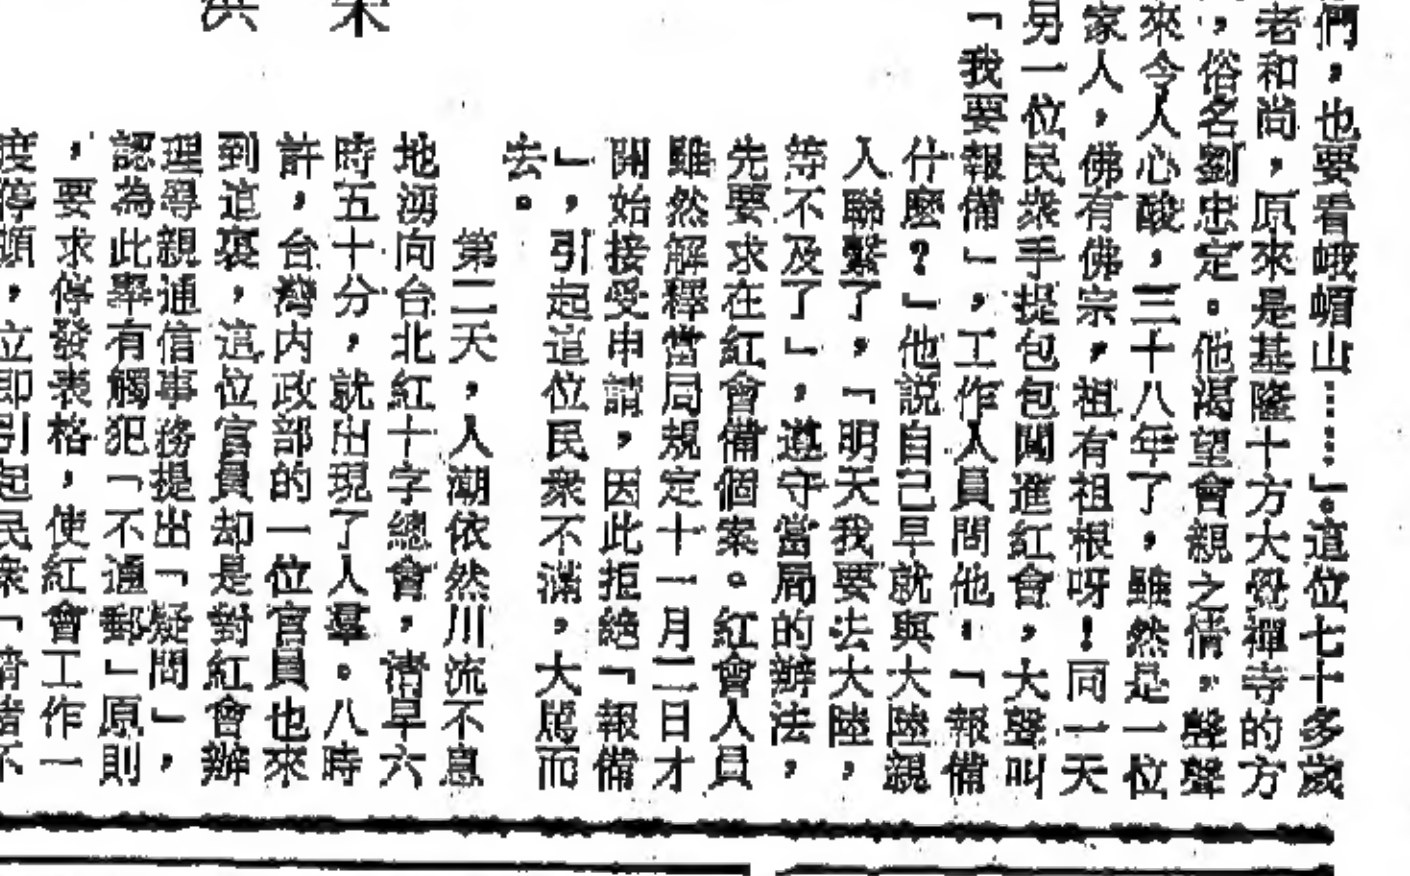 們，也要看峨嵋山……」。這位七十多歲
老和尚，原來是基隆十方大覺禪寺的方
，俗名劉忠定。他渴望會親之情，聲聲
來令人心酸，三十八年了，雖然是一位
家人，佛有佛宗，祖有祖根呀！同一天
另一位民衆手提包包闖進紅會，大聲叫
「我要報備」，工作人員問他：「報備
什麼？」他說自己早就與大陸親
人聯繫了，「明天我要去大陸，
等不及了」，遵守當局的辦法，
先要求在紅會備個案。紅會人員
雖然解釋當局規定十一月二日才
開始接受申請，因此拒絕「報備
」，引起這位民衆不滿，大罵而
去。
第二天，人潮依然川流不息
地湧向台北紅十字總會，清早六
時五十分，就出現了人羣。八時
許，台灣內政部的一位官員也來
到這裏，這位官員却是對紅會辦
理尋親通信事務提出「疑問」，
認為此舉有觸犯「不通郵」原則
，要求停發表格，使紅會工作一
度停頓，立即引起民衆「